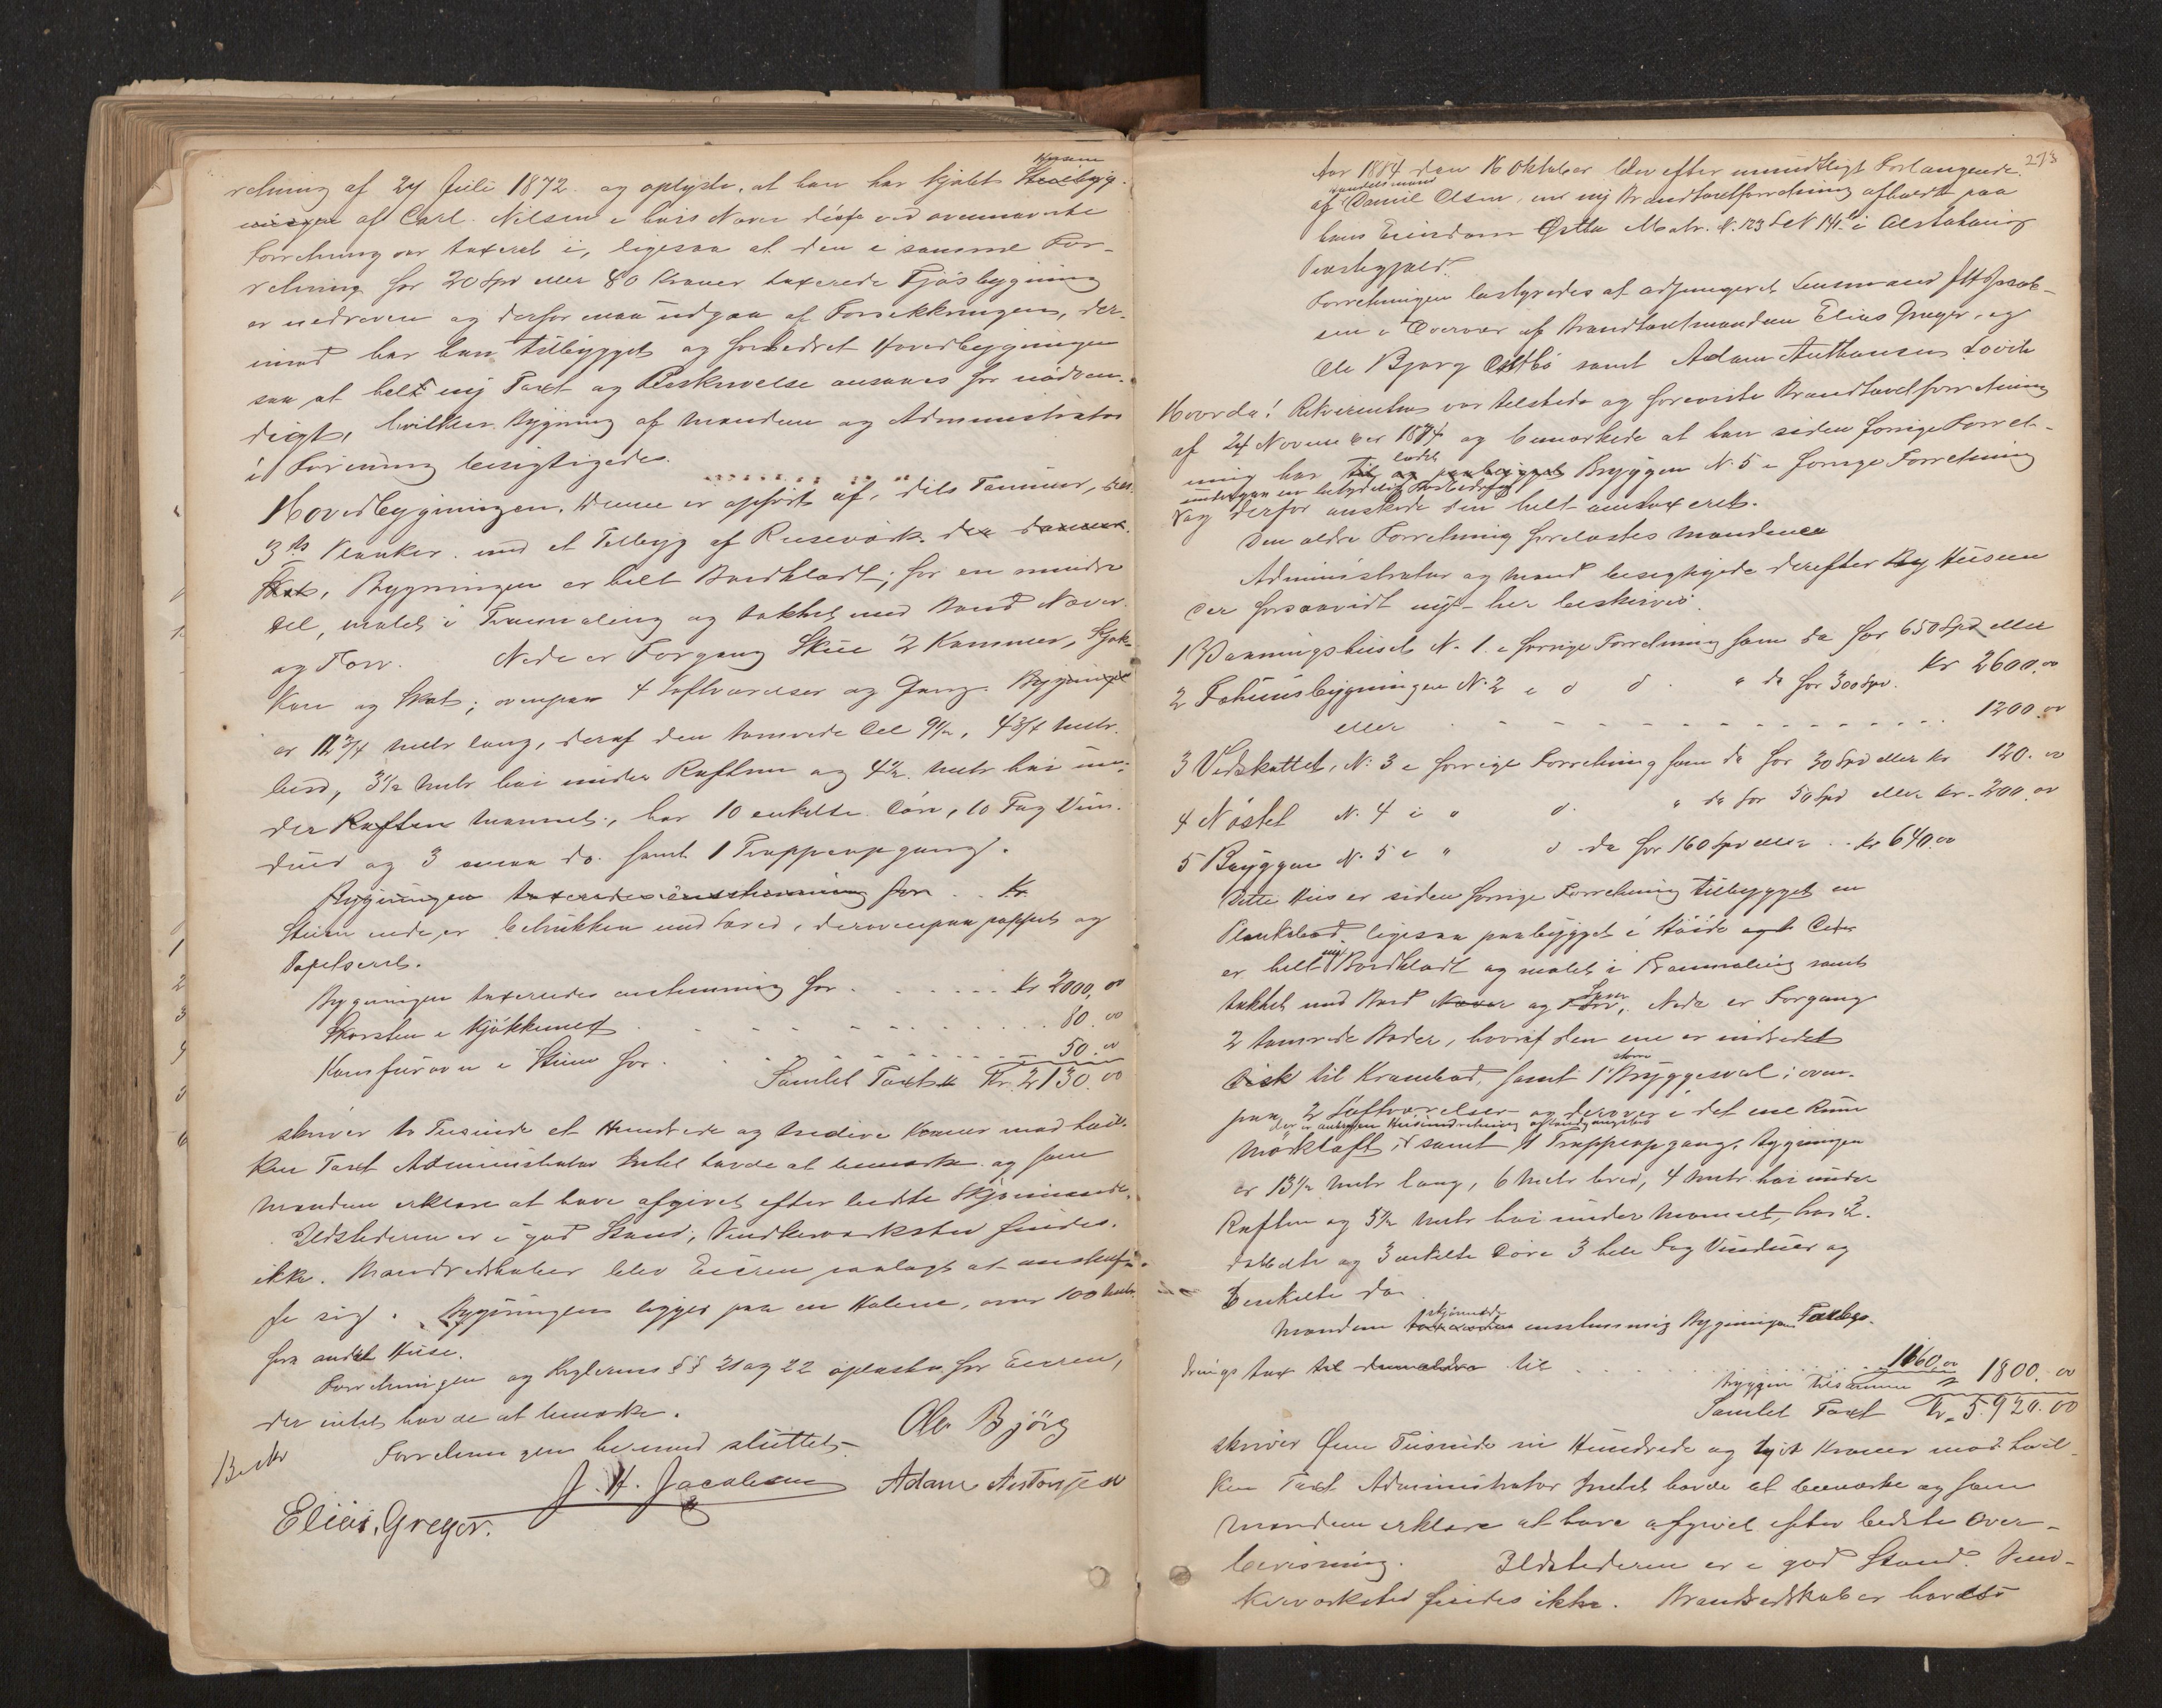 Husene
retning af 24 Juli 1872 og oplyste, at han har kjøbt Stuebyg-
ningen af Carl Nilsen i hvis Navn disse ved ovennævnte
Forretning var taxeret i, ligesaa at den i samme For-
retning for 20 Spd eller 80 Kroner taxerede Fjøsbygning
er nedreven og derfor maa udgaa af Forsikkringen, der-
imod har han tilbygget og forbedret Hovedbygningen
saa at helt ny Taxt og Beskrivelse ansaaes for nødven-
digt, hvilken Bygning af Mændene og Administrator
i Forening besigtigedes.
Hovedbygningen. Denne er opført af, dels Tømmer, dels
3 ts Planker med et Tilbyg af Reisevärk
Bygningen er helt Bordklædt; for en mindre
Del, malet i Farvemaling og tækket med Bord Næver
og Torv. Nede er Forgang Stue 2 Kammer, Kjøk-
ken og Skot; ovenpaa 4 Loftværelser og Gang. Bygningen
er 12 3/4 Metr lang, deraf den tømrede Del 9 1/2, 4 3/4 Metr.
bred, 3 1/2 Metr høi under Raften og 4 1/2 Metr høi un-
der Raften Mønnet, har 10 enkelte Döre, 10 Fag Vin-
duer og 3 smaa do. samt 1 Trappeopgang.
Bygningen taxeredes enstemmig for .. Kr.
Stuen nede er betrukken med Lærred, derovenpaa pappet og
Tapetseret.
Bygningen taxeredes enstemmig for . . . . . . Kr 2000,00
Skorsten i Kjøkkenet . . . . . . . . . 80.00
Komfurovn i Stuen for . . . . . . . . 50.00
Samlet Taxt Kr. 2130.00
skriver to Tusinde et Hundrede og tredive Kroner mod hvil-
ken Taxt Administrator Intet havde at bemærke og som
Mændene erklære at have afgivet efter bedste Skjønnende.
Ildstederne er i god Stand; Vindkeværksted findes
ikke. Brandredskaber blev Eieren paalagt at anskaf-
fe sig. Bygningen ligger paa en Holme, over 100 Metr.
fra andet Huse.
Forretningen og Reglernes §§ 21 og 22 oplæstes for Eieren,
der intet havde at bemærke.
Forretningen hermed sluttet.
Ole Björg
J. H. Jacobsen
Adam Antonsen
Elias, Greger.
273
Aar 1884 den 16 Oktober blev efter mundtligt Forlangende
Handelsmand
af Daniel Olsen, en ny Brandtaxtforretning afholdt paa
hans Eiendom Østbø Matr. N. 123 LN 141 i Alstahaug
Præstegjæld.
Forretningen bestyredes af adjungeret Lensmand J H Jacob-
sen i Overvær af Brandtaxtmændene Elias Greger, og
Ole Bjørg Østbö samt Adam Anthonsen Lovik
Hvorda! Rekvirenten var tilstede og foreviste Brandtaxtforretning
af 24 November 1874 og bemærkede at han siden forrige Forret-
ladet
ning har til og paabygget Bryggen N. 5 i forrige Forretning
undergaa en betydelig Forbedring
og derfor ønskede den helt omtaxeret.
Den ældre Forretning forelæstes Mændene
Administrator og Mænd besigtigede derefter Husene
der forsaavidt nyt her beskrives.
1 Vaaningshuset N. 1. i forrige Forretning som da for 650 Spd eller
Kr 2600.00
2 Fæhusbygningen N. 2 i d d. " da for 300 Spd.
eller - - - - - - - - - - 1200.00
3 Vedskottet, N. 3 i forrige Forretning som da for 30 Spd eller Kr 120.00
4 Nøstet N. 4 i " d. " da for 50 Spd eller Kr. 200.00
5 Bryggen N. 5 i " d da for 160 Spd eller .. Kr 640.00
Dette Hus er siden forrige Forretning tilbygget en
Plankebod, ligesaa paabygget i Høide
ny
er helt Bordklædt og malet i Farvemaling samt
Spon
tækket med Bord Næver og Torv, Nede er Forgang
2 tømrede Boder, hvoraf den ene er indredet
stor
Disk til Krambod, samt 1 Bryggesval; oven-
paa 2 Loftværelser og derover i det ene Rum
Mörkloft, samt 1 Trappeopgang, Bygningen
er 13 1/2 Metr lang, 6 Metr bred, 4 Metr høi under
Raften og 5 1/2 Metr høi under Mønnet, har 2
dobbelte og 3 enkelte Döre 3 hele Fag Vinduer og
enkelte do.
skjønnede
Mændene taxerede enstemmig Bygningen Forbed-
drings taxt til . . . . . . 1160.00
Bryggen Tilsammen " 1800.00
Samlet Taxt Kr. 5.920.00
skriver Fem Tusinde ni Hundrede og tyve Kroner mod hvil-
ken Taxt Administrator Intet havde at bemærke og som
Mændene erklære at have afgivet efter bedste Over-
bevisning. Ildstederne er i god Stand. Vind-
keværksted findes ikke. Brandredskaber havdes